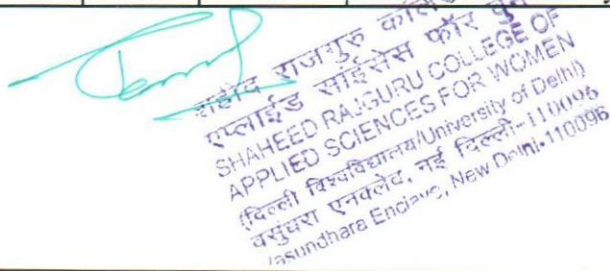 शहीद राजगुरु कॉलेज
एप्लाईड साईंसेस फॉर
SHAHEED RAJGURU COLLEGE OF
APPLIED SCIENCES FOR WOMEN
(दिल्ली विश्वविद्यालय/University of Delhi)
वसुंधरा एनक्लेव, नई दिल्ली-110096
Vasundhara Enclave, New Delhi-110096